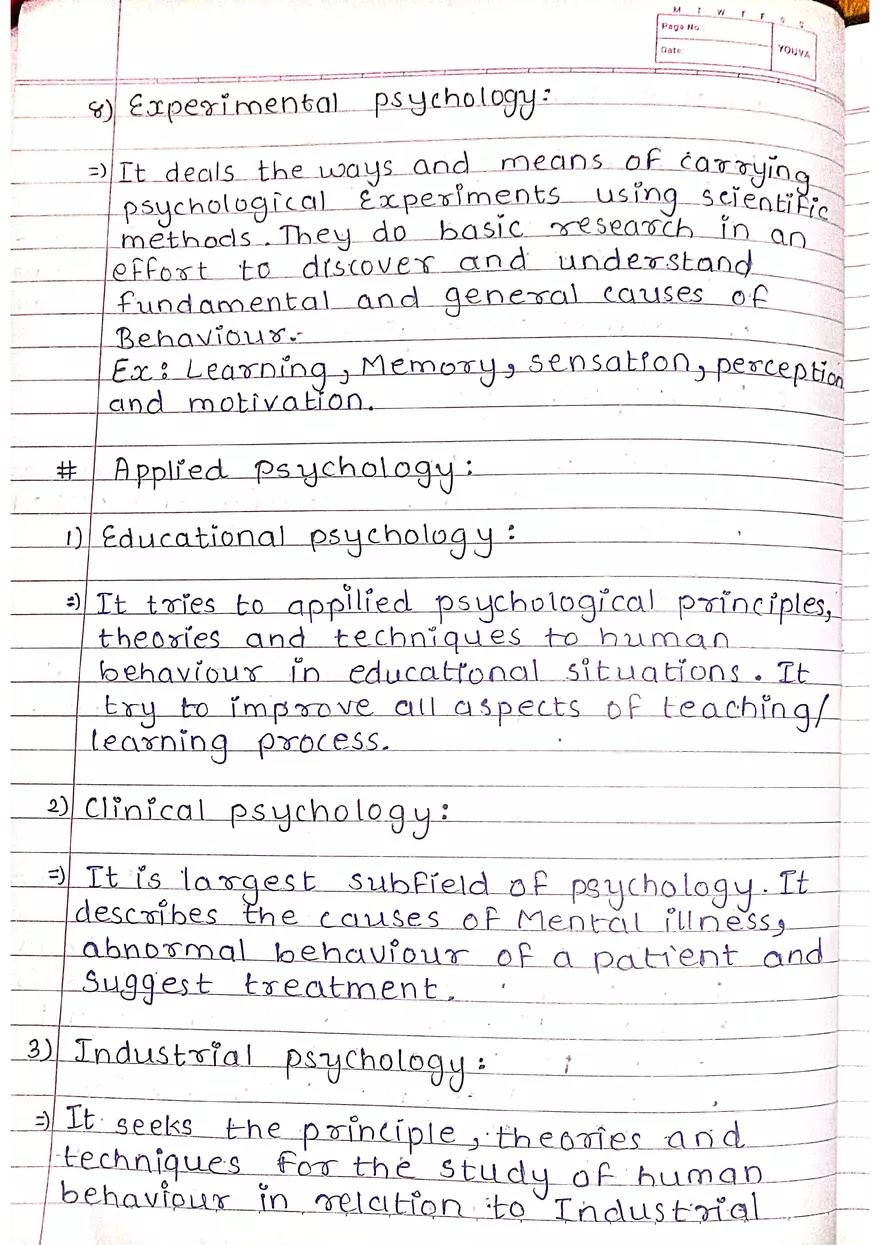 M T W T F S S
Page No.
Date:
YOUVA
8) Experimental psychology:
=) It deals the ways and means of carrying
psychological Experiments using scientific
methods. They do basic research in an
effort to discover and understand
fundamental and general causes of
Behaviour.-
Ex: Learning, Memory, sensation, perception
and motivation.
# Applied psychology:
1) Educational psychology:
=) It tries to appilied psychological principles,
theories and techniques to human
behaviour in educational situations. It
try to improve all aspects of teaching/
learning process.
2) Clinical psychology:
=) It is largest subfield of psychology. It
describes the causes of Mental illness,
abnormal behaviour of a patient and
Suggest treatment.
3) Industrial psychology:
=) It seeks the principle, theories and
techniques for the study of human
behaviour in relation to Industrial